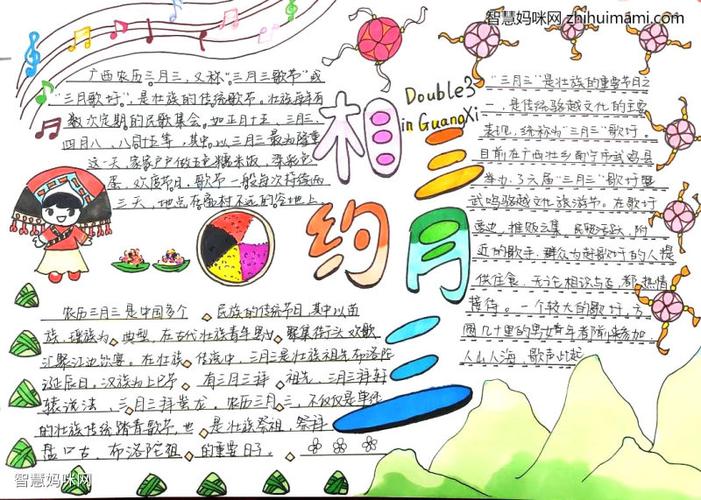 智慧妈咪网 zhihuimami.com
相约
三月三
Double3
in GuangXi
广西农历三月三，又称"三月三歌节"或
"三月歌圩"，是壮族的传统歌节。壮族每有
数次定期的民歌集会。如正月十五、三月三、
四月八、八月十五等，其中，以三月三最为隆重
这一天，家家户户做五色糯米饭，染彩色
蛋，欢度节日，歌节一般每次持续两
三天，地点在离村不远的空地上
"三月三"是壮族的重要节日之
一，是传统骆越文化的主要
表现，统称为"三月三"歌圩，
目前在广西壮乡南宁市武鸣县
举办了六届"三月三"歌圩暨
武鸣骆越文化旅游节。在歌圩
旁边，摊贩云集，民贸活跃，附
近的歌手、群众为赶歌圩的人提
供住食，无论相识与否，都热情
接待。一个较大的歌圩，方
圆几十里的男女青年都前来参加
人山人海，歌声此起
农历三月三是中国多个 民族的传统节日，其中以苗
族、瑶族为 典型，在古代壮族青年男女 聚集街头欢歌
汇聚江边饮宴。在壮族 传说中，三月三是壮族祖先布洛陀
诞辰日，汉族为上巳节 有三月三拜 祖先，三月三拜轩
辕说法、 三月三拜觉龙，农历三月三，不仅仅是单纯
的壮族传统踏青歌节，也 是壮族祭祖，祭拜
盘古、布洛陀祖 的重要日子。
智慧妈咪网